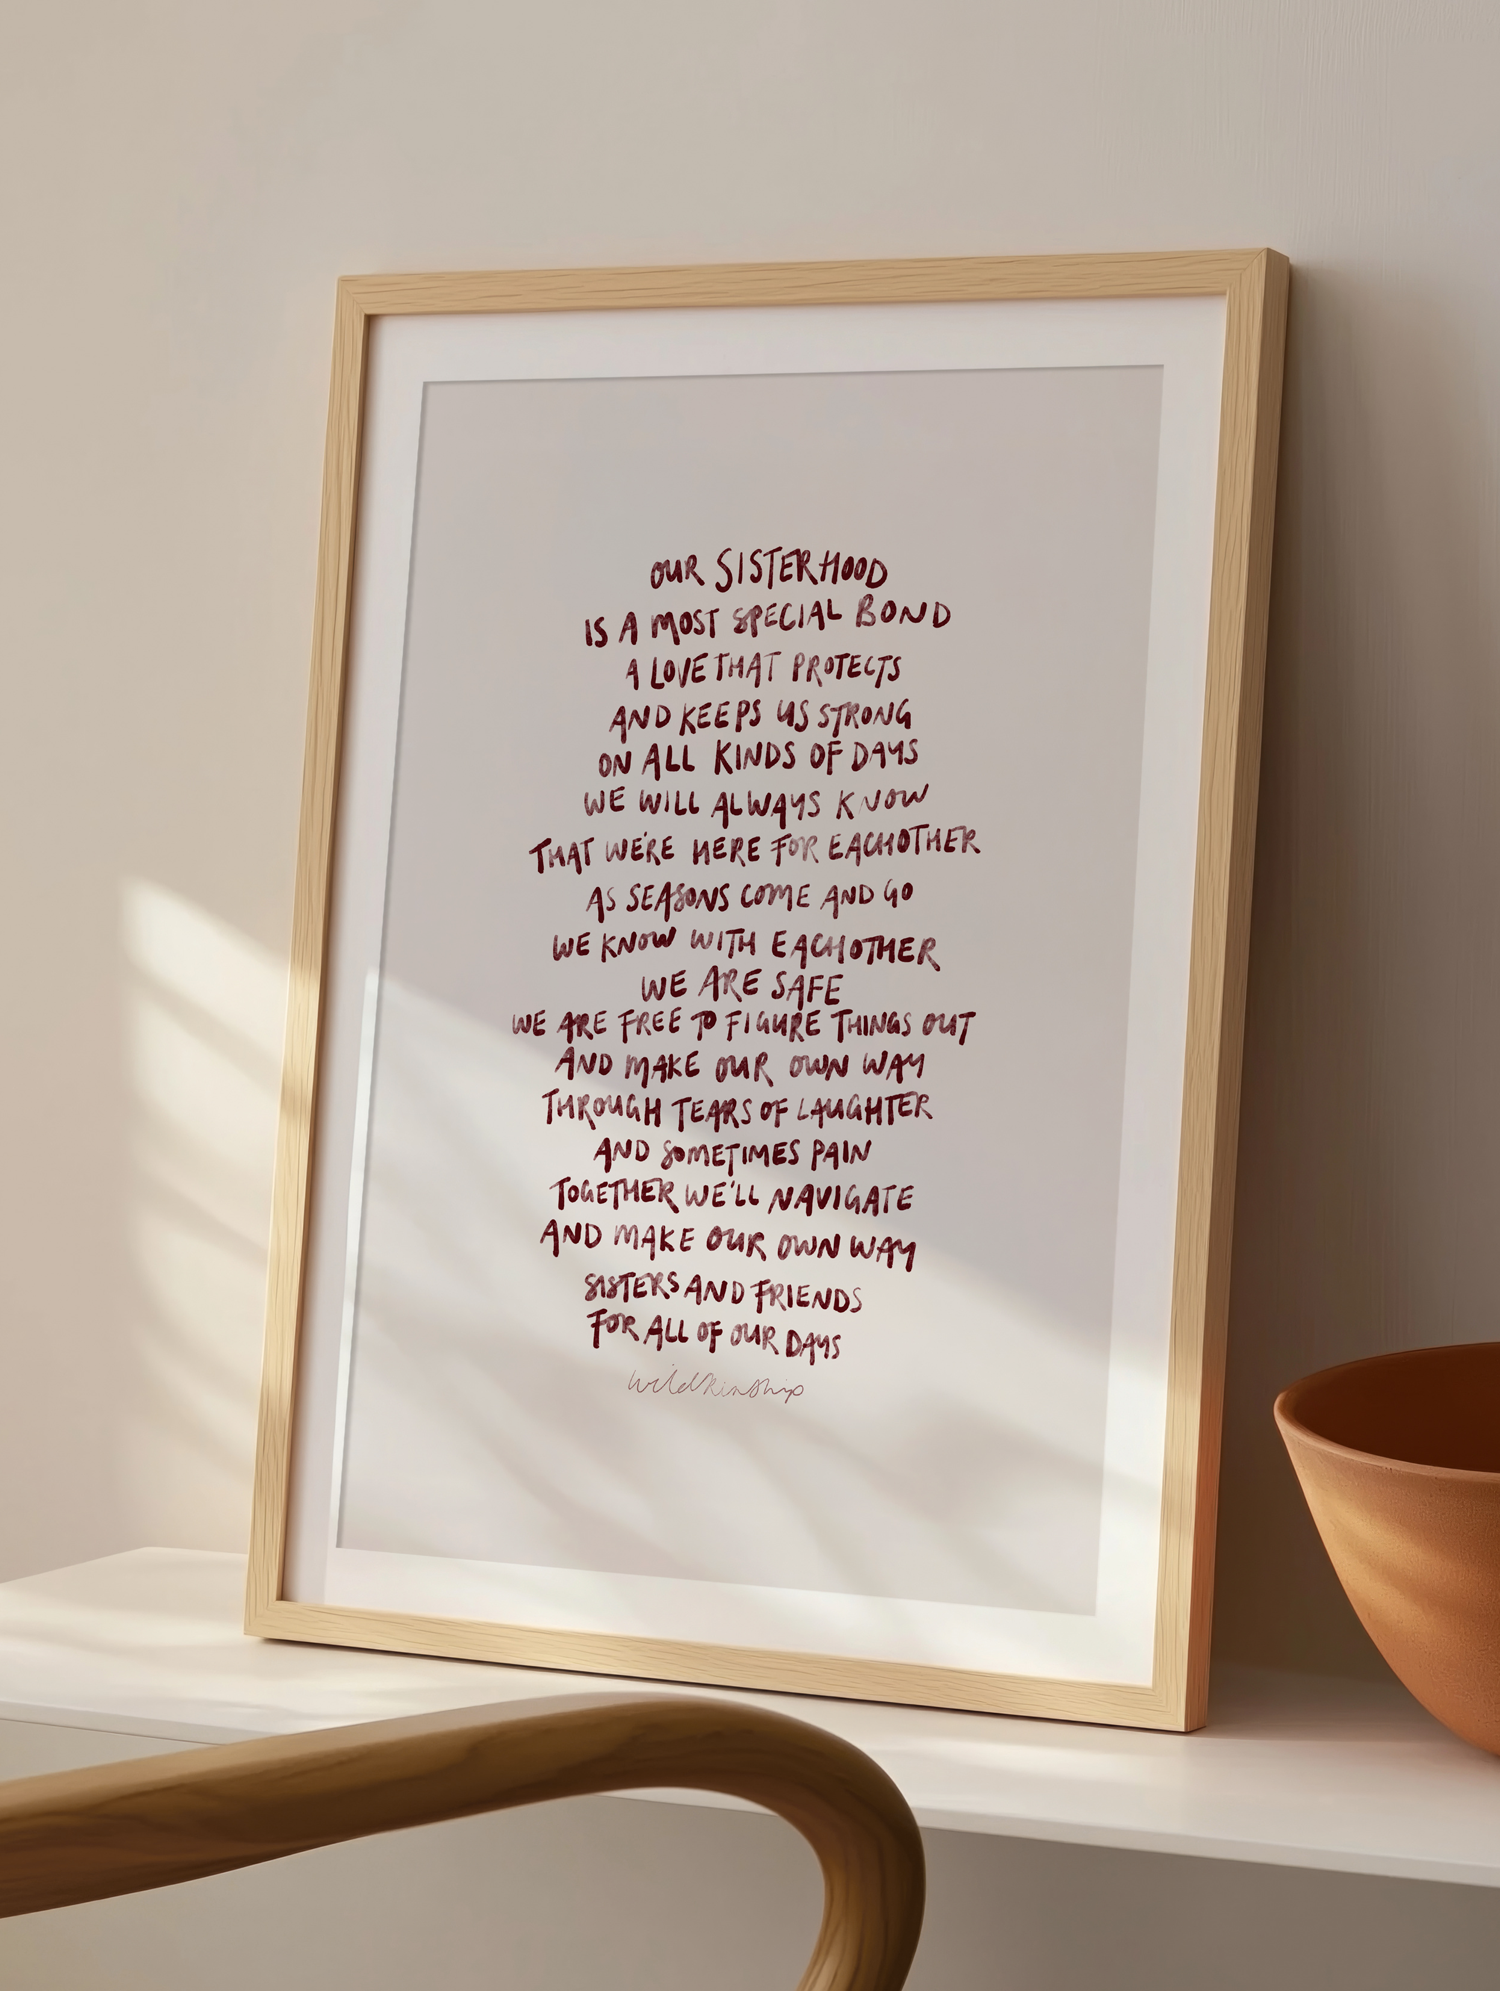 OUR SISTERHOOD
IS A MOST SPECIAL BOND
A LOVE THAT PROTECTS
AND KEEPS US STRONG
ON ALL KINDS OF DAYS
WE WILL ALWAYS KNOW
THAT WE'RE HERE FOR EACHOTHER
AS SEASONS COME AND GO
WE KNOW WITH EACHOTHER
WE ARE SAFE
WE ARE FREE TO FIGURE THINGS OUT
AND MAKE OUR OWN WAY
THROUGH TEARS OF LAUGHTER
AND SOMETIMES PAIN
TOGETHER WE'LL NAVIGATE
AND MAKE OUR OWN WAY
SISTERS AND FRIENDS
FOR ALL OF OUR DAYS
wildkinship